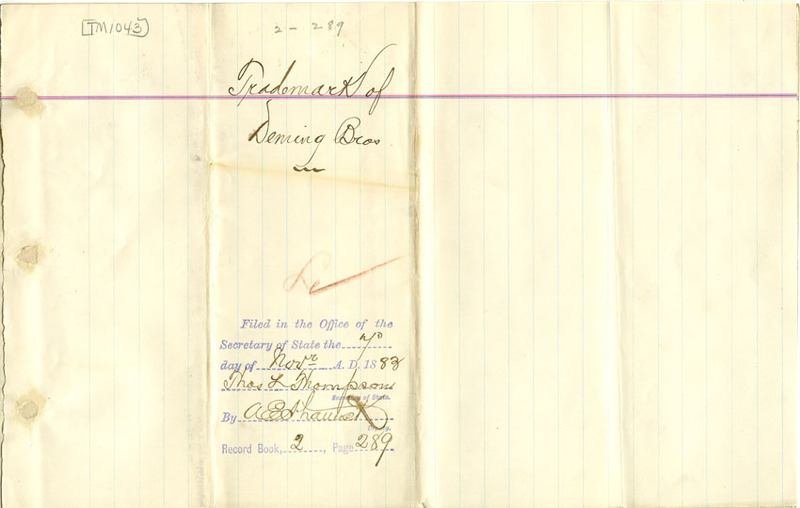 [TM1043]
2-289
Trademark of
Deming Bros
Filed in the Office of the
Secretary of State the 7th
day of Novr A.D. 1883
Thos L Thompson
Secretary of State.
By
Deputy.
Record Book, 2, Page 289